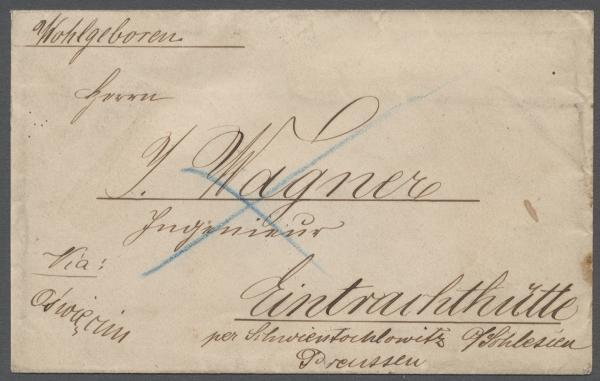 Wohlgeboren
Herrn
J. Wagner
Ingenieur
Via:
Oświęcim
Eintrachthütte
per Schwientochlowitz O/Schlesien
Preussen